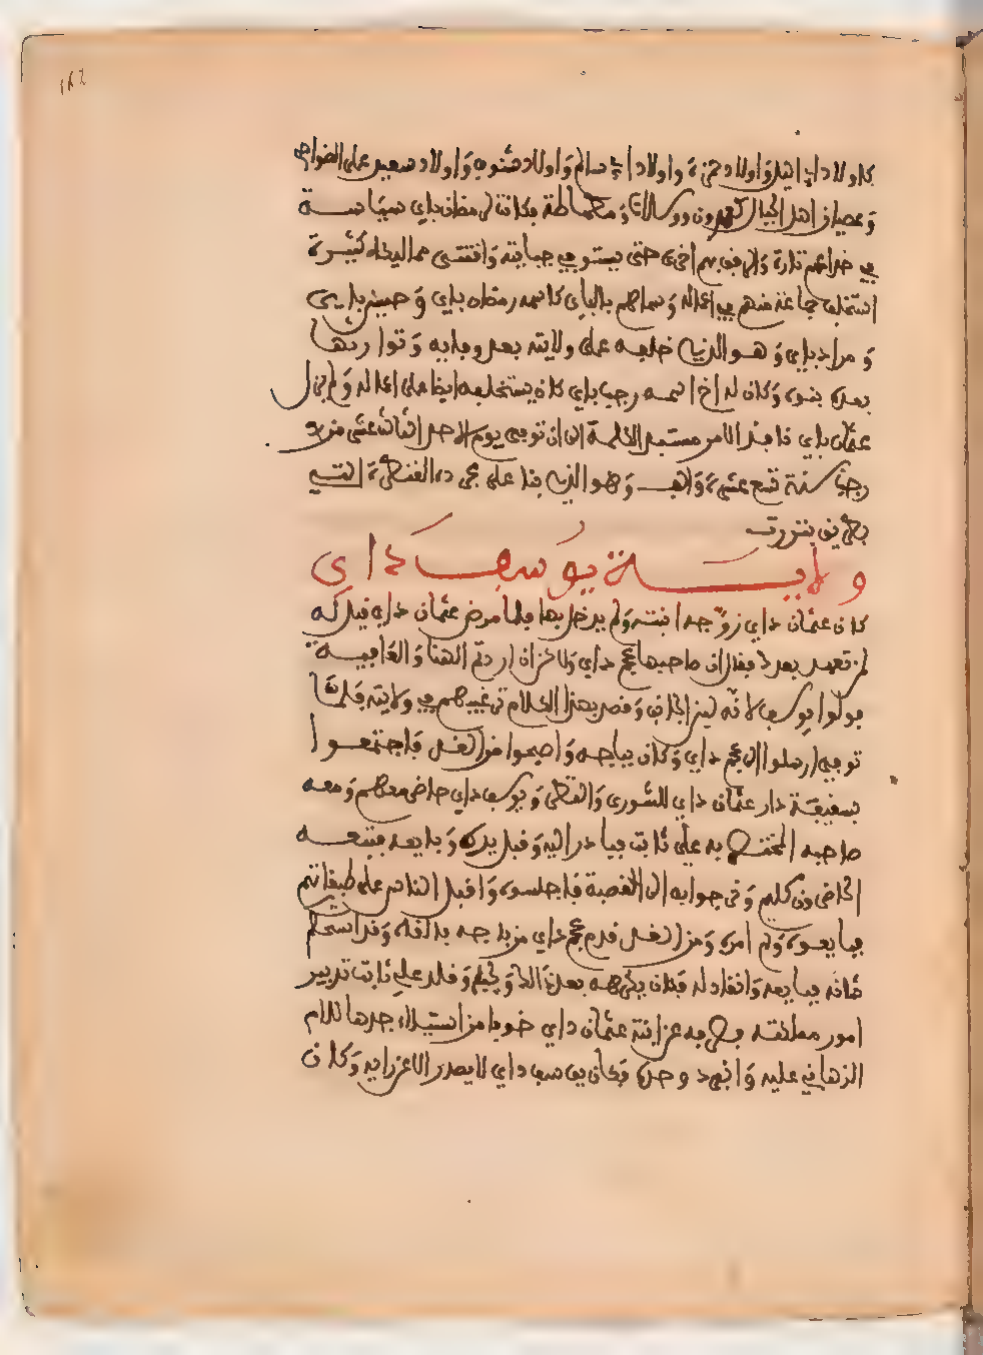 162
كاولاد ابي الليل واولاد حمزة واولاد ابي سالم واولاد شنوف واولاد سعيد على الضواحي
وعصيان اهل الجبال كعمدون ووسلات ومطماطة فكانت لرمضان باي سياسة
في خداعهم تارة والرفق بهم اخرى حتى يستوفي جبايته واقتنى مماليكا كثيرة
استخلف جماعة منهم في اعماله وسماهم بالباي كاسمه رمضان باي وحسين باي
ومراد باي وهو الذي خلفه على ولايته بعد وفاته وتوارثها
بعده بنوه وكان له اخ اسمه رجب باي كان يستخلفه ايضا على اعماله ولم يزل
عثمان داي نافذ الامر مستبد الكلمة الى ان توفي يوم الاحد الثالث عشر من
رجب سنة تسع عشرة والف وهو الذي بنا على مجردة القنطرة التي
بطريق بنزرت
ولاية يوسف داي
كان عثمان داي زوجه ابنته ولم يدخل بها فلما مرض عثمان داي قيل له
لمن تعهد بعدك فقال ان صاحبها عجم داي ولاكن ان اردتم الهنا والعافية
فولوا يوسف لانه لين الجانب وقصد بهذا الكلام ترغيبهم في ولايته فلما
توفي ارسلوا الى عجم داي وكان بباجه واصبحوا من الغد فاجتمعوا
بسقيفة دار عثمان داي للشورى والنظر ويوسف داي حاضر معهم ومعه
صاحبه المختص به علي ثابت فبادر اليه وقبل يده وبايعه فتبعه
الحاضرون كلهم وخرجوا به الى القصبة فاجلسوه واقبل الناس على طبقاتهم
فبايعوه وتم امره ومن الغد قدم عجم داي من باجه فالفاه وقد استحكم
شانه فبايعه وانقاد له فكان يكرهه بعد ذالك ويجله وقلد علي ثابت تدبير
امور مملكته فصرفه عن ابنة عثمان داي خوفا من استيلاء جدها للام
عليه وانفرد وحده فكان يوسف داي لا يصدر الا عن رايه وكان